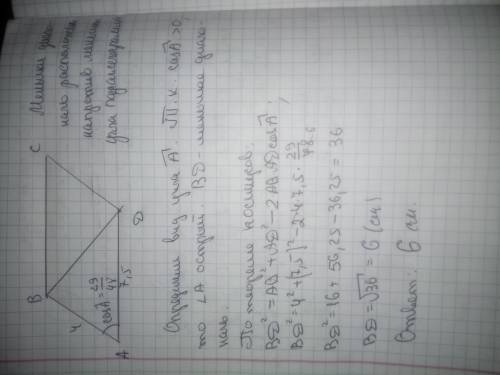 B
C
4
cosA = 29/48
A
7,5
D
Меньшая диаго-
наль расположена
напротив меньшего
угла параллелограмма
Определим вид угла A. Т.к. cosA>0,
то ∠A острый. BD - меньшая диаго-
наль.
По теореме косинусов:
BD² = AB² + AD² - 2AB·AD cosA;
BD² = 4² + (7,5)² - 2·4·7,5·29/48;
BD² = 16 + 56,25 - 36,25 = 36
BD = √36 = 6 (см)
Ответ: 6 см.